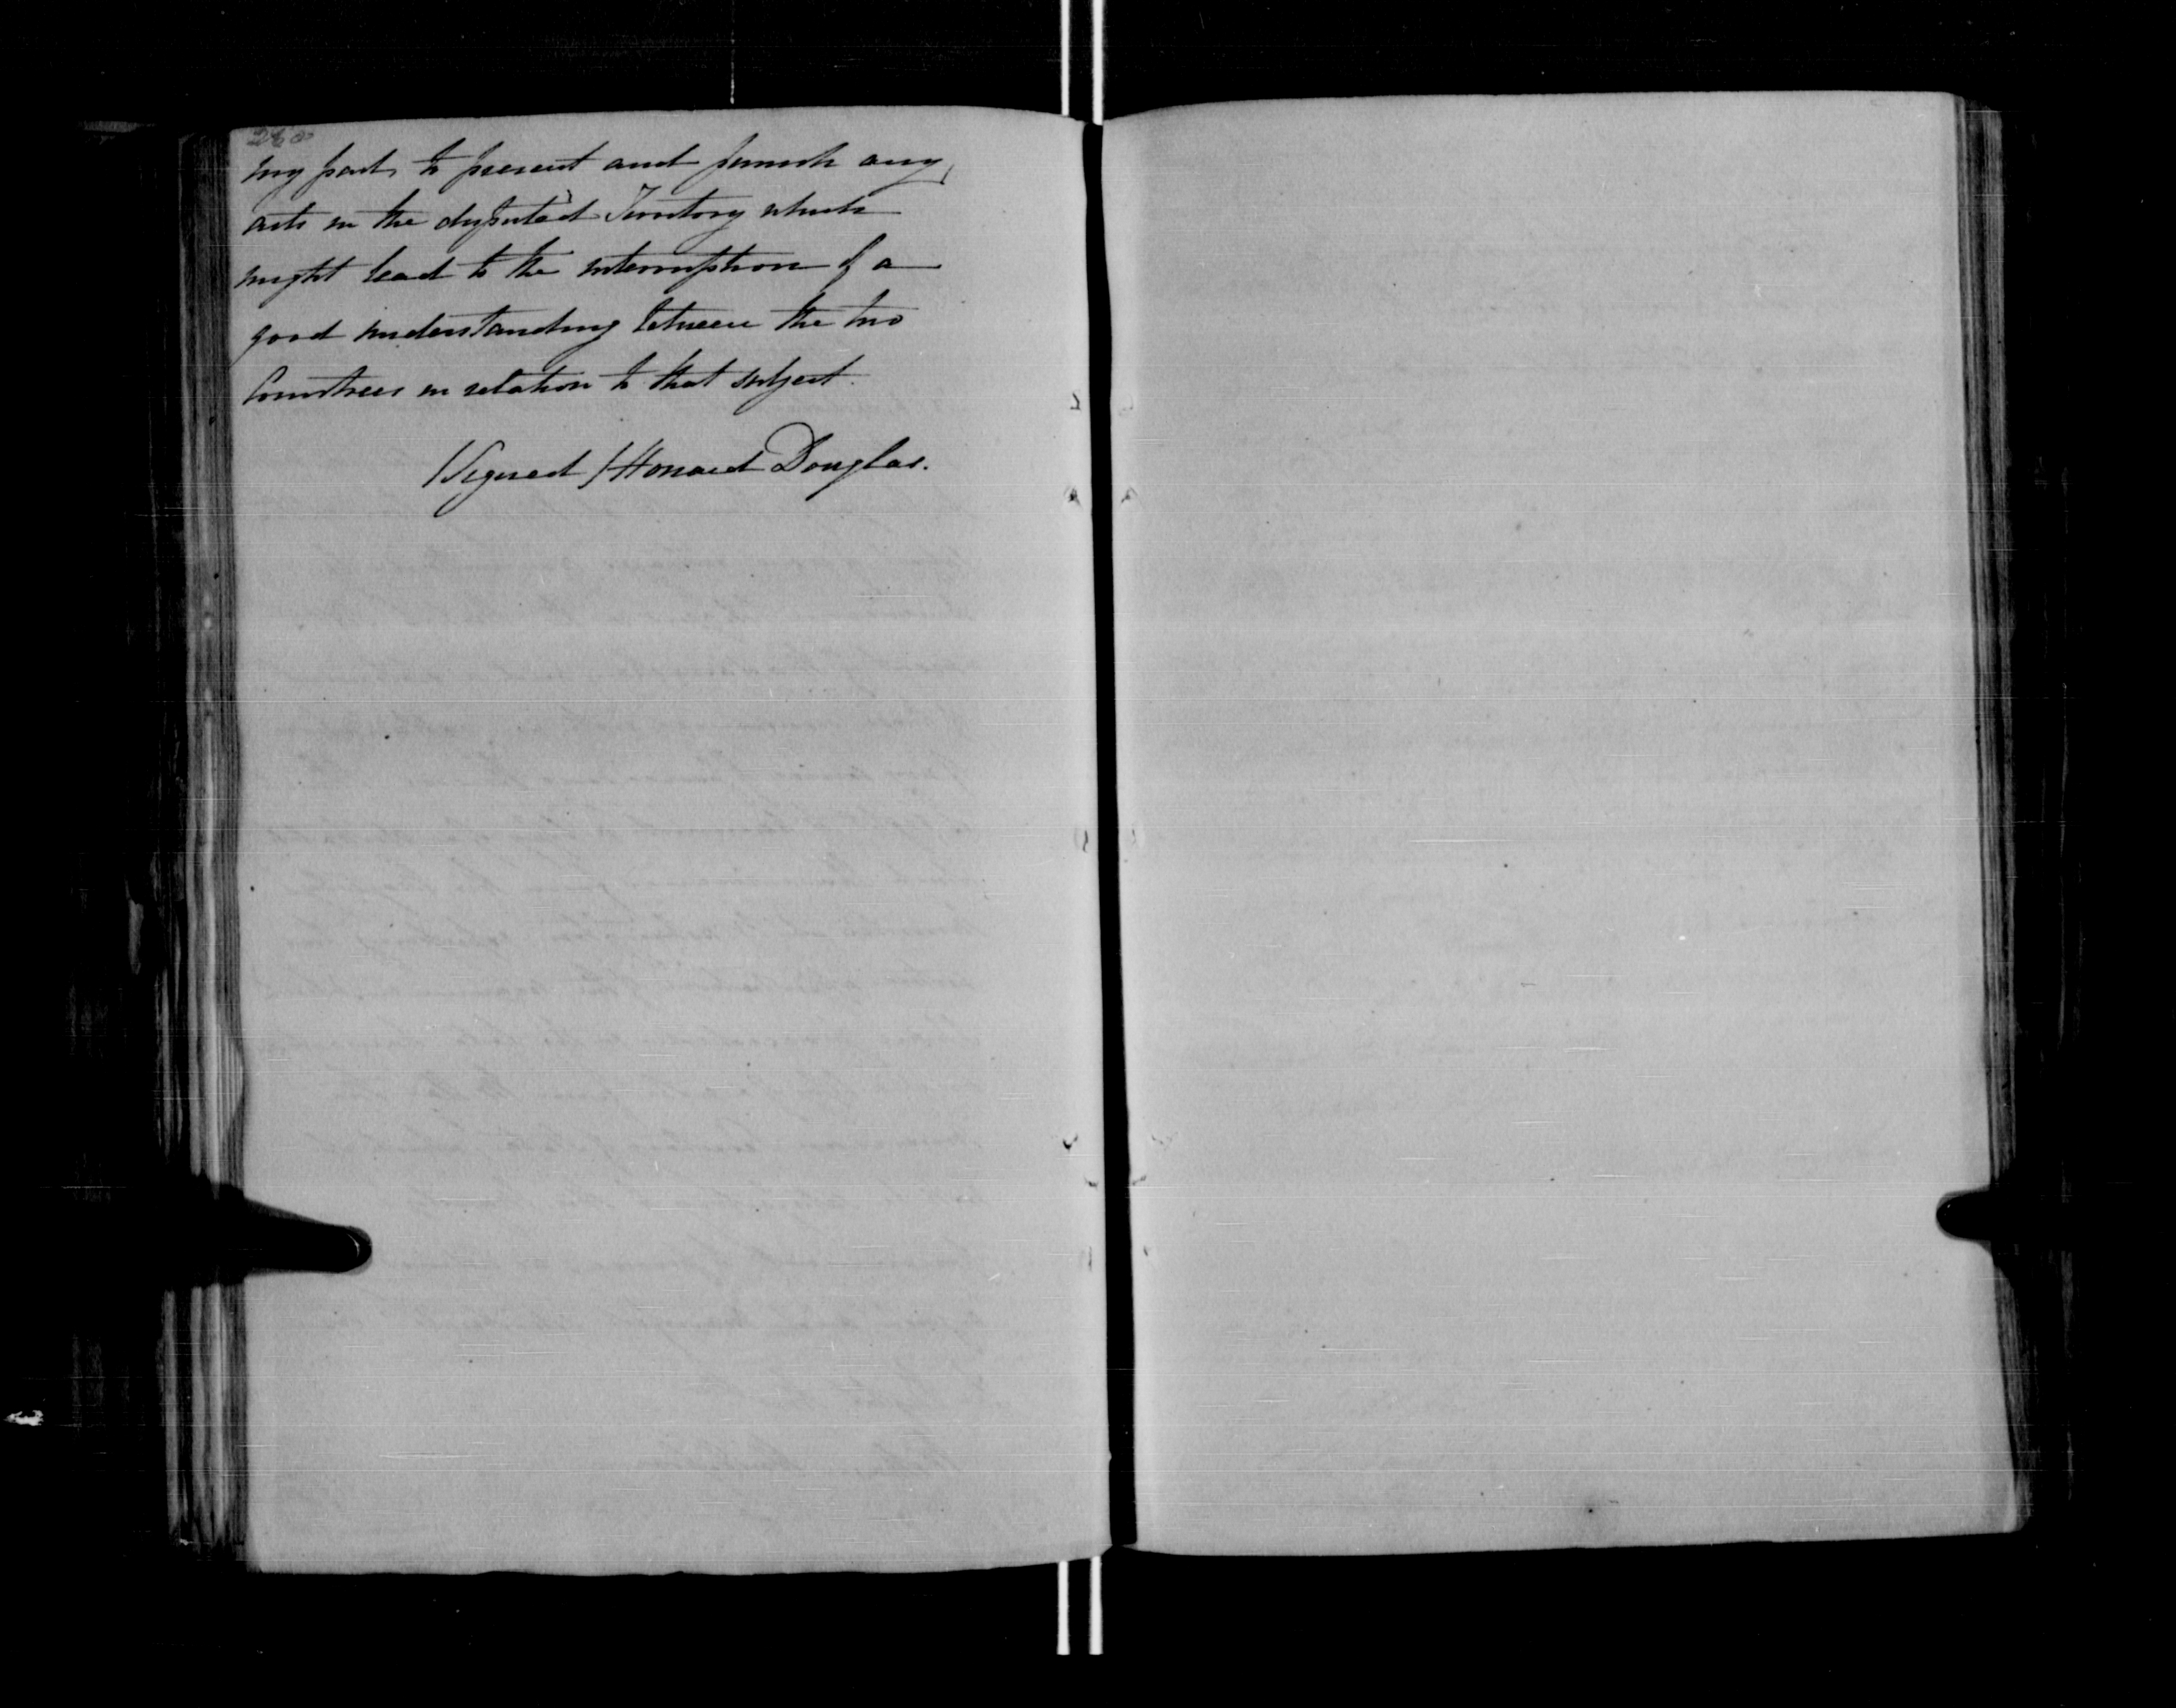 my part, to prevent and punish any
acts in the disputed Territory which
might lead to the interruption of a
good understanding between the two
Countries in relation to that subject.
(Signed) Howard Douglas.